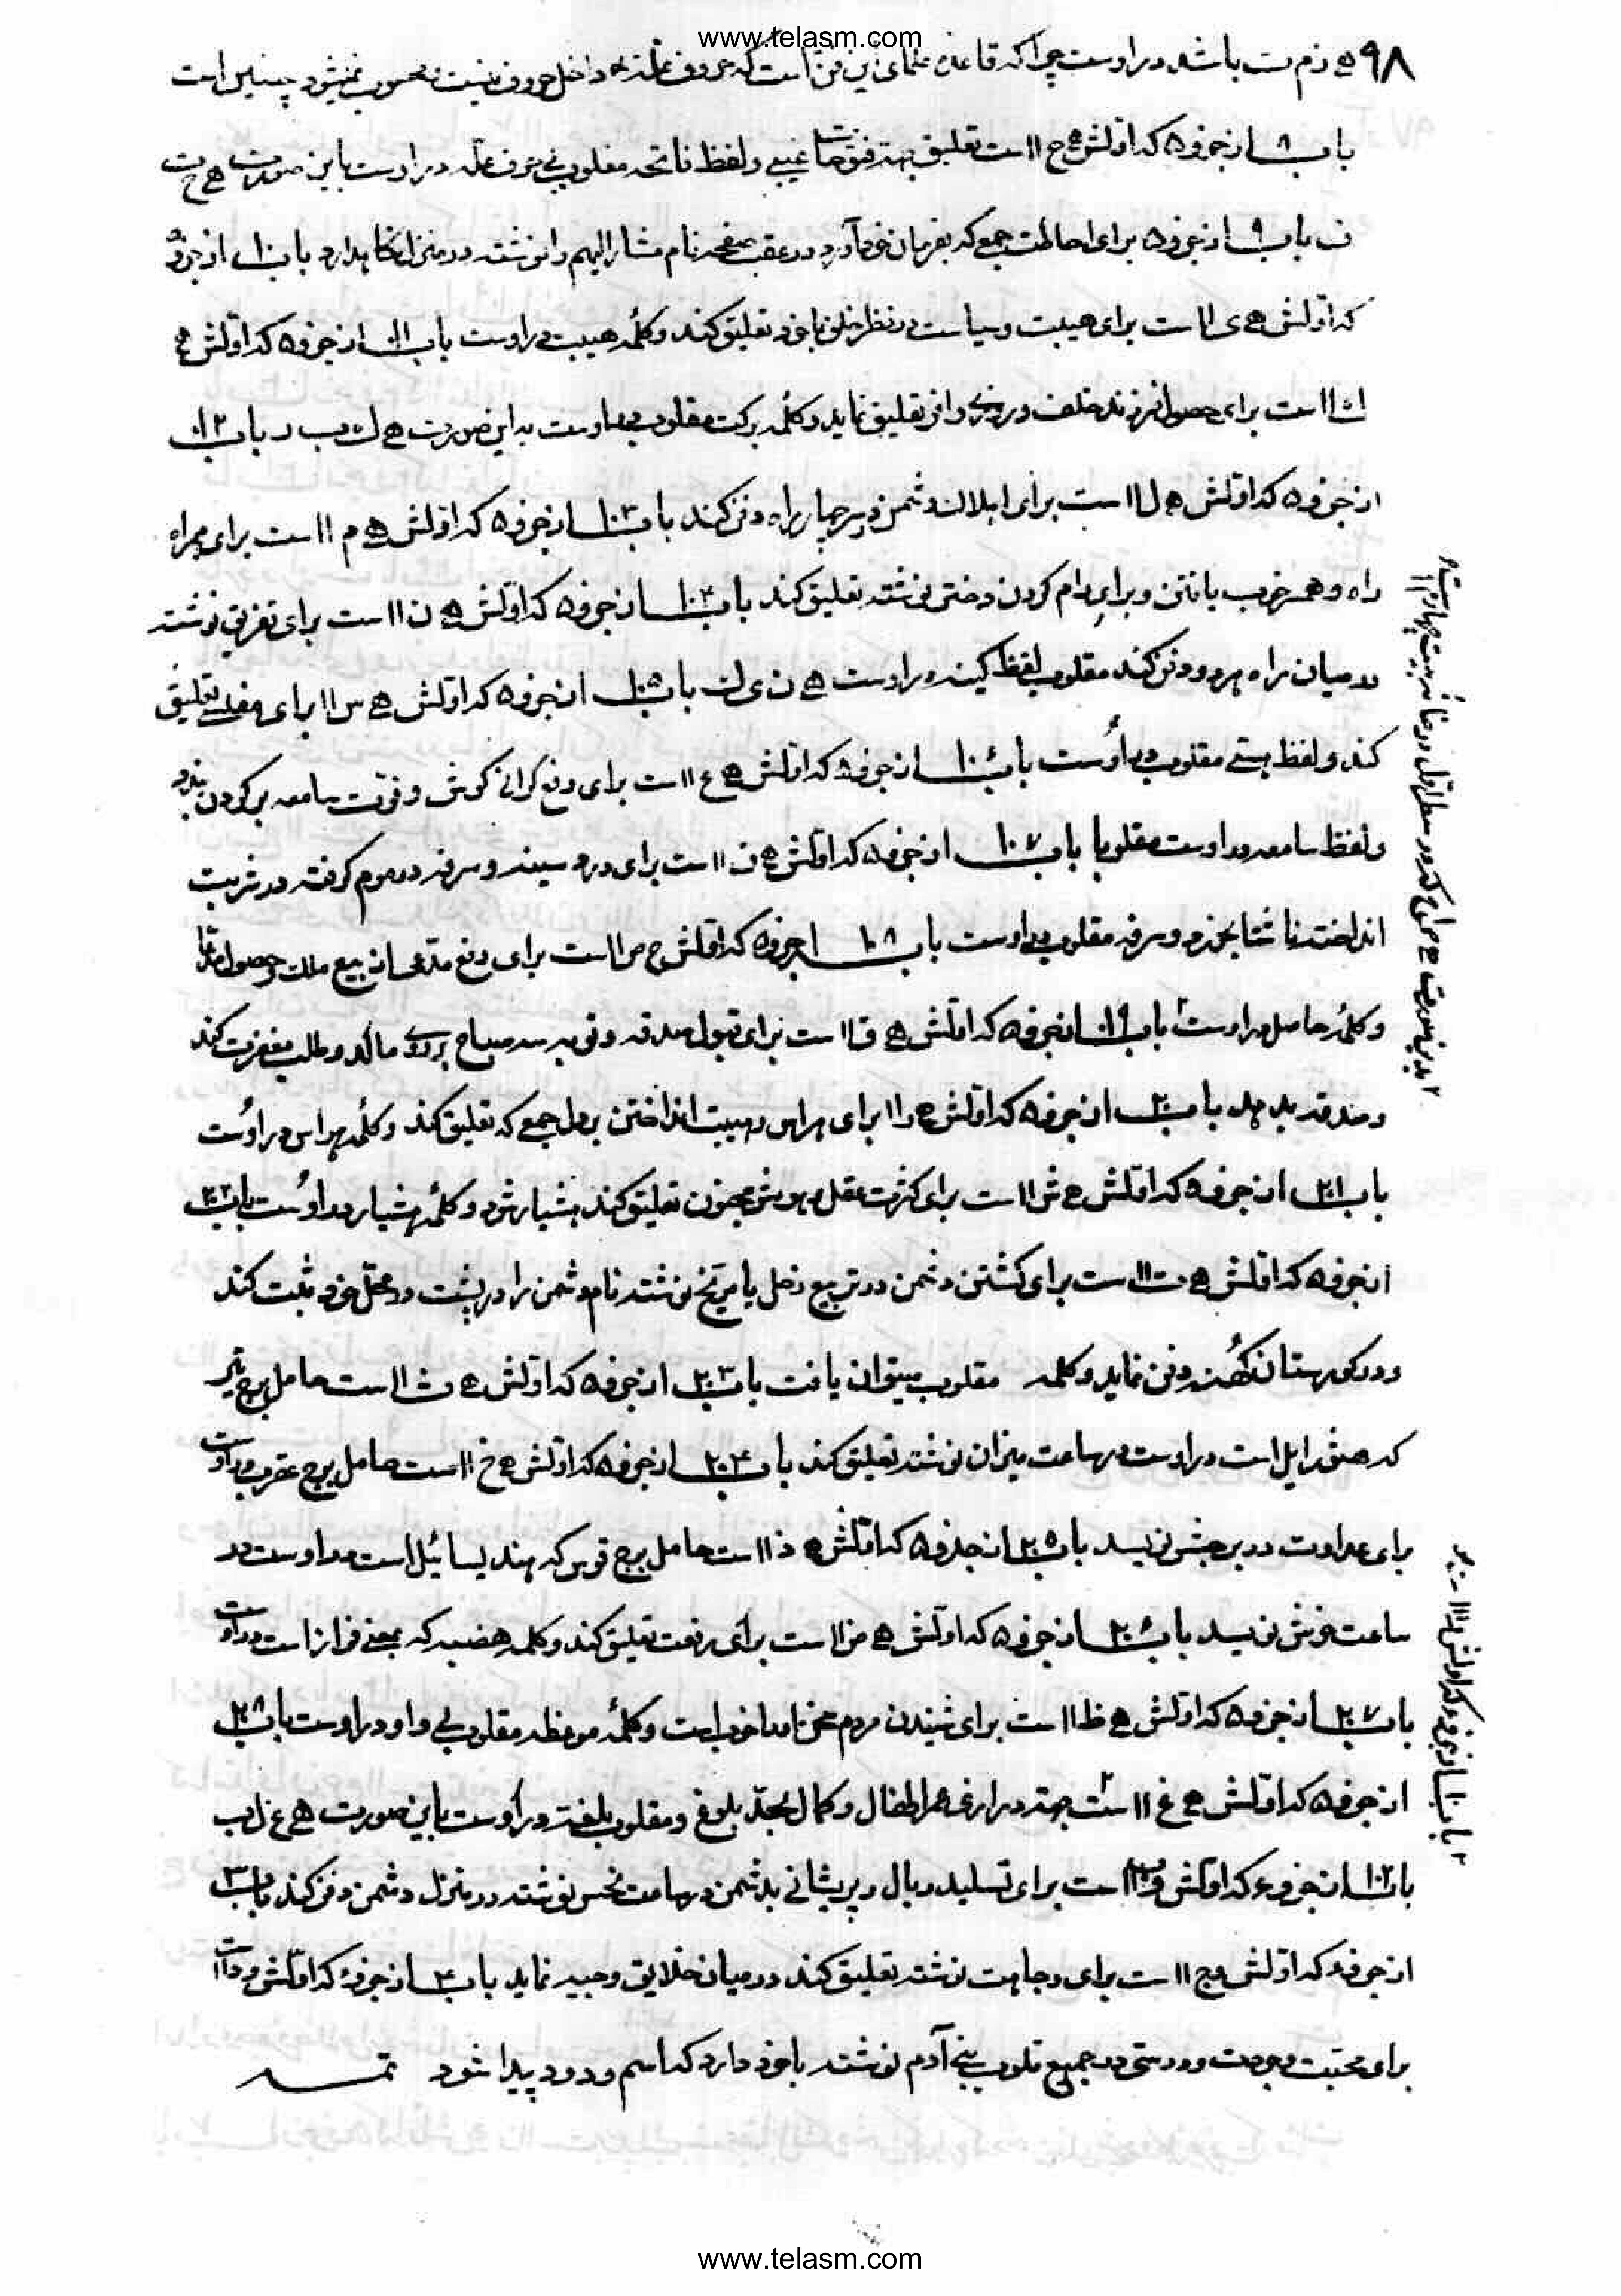 www.telasm.com
۹۸ ه ز م ت باشد در اوست چرا که قاعده علمای این فن است که حروف علّه داخل حروف محسوب نمیشود چنین است
باب ۸ از جزو ۵ که اوّلش ه ح ۱۱ ست تعلیق جهة فتوحات غیبی و لفظ فاتحه مقلوب بی حرف علّه در اوست باین صورت ه ح ت
ف باب ۹ از جزو ۵ برای اطاعت جمع که بفرمان خود آرد در عقب صفحه نام مشار الیهم را نوشته در منزل نگاهدارد باب ۱۰ از جزو ۵
که اوّلش ه ی ۱۱ ست برای هیبت و سیاست در نظر خلق با خود تعلیق کند و کلمهٔ هیبت در اوست باب ۱۱ از جزو ۵ که اوّلش ه
ک ۱۱ ست برای حصول فرزند خلف و روزی وافر تعلیق نماید و کلمهٔ برکت مقلوب در اوست به این صورت ه ک ت ب ر باب ۱۲
از جزو ۵ که اوّلش ه ل ۱۱ ست برای اهلاک دشمن در سر چهار راه دفن کند باب ۱۳ از جزو ۵ که اوّلش ه م ۱۱ ست برای همراه
راه و همسر خوب یافتن و برای رام کردن دختر نوشته تعلیق کند باب ۱۴ از جزو ۵ که اوّلش ه ن ۱۱ ست برای تفریق نوشته
در میان راه هر دو دفن کند مقلوب لفظ کینه در اوست ه ن ی ک باب ۱۵ از جزو ۵ که اوّلش ه س ۱۱ برای تعلیق
کند و لفظ مقلوب در اوست باب ۱۶ از جزو ۵ که اوّلش ه ع ۱۱ ست برای دفع گرانی گوش و قوّت سامعه بر گردن بندد
و لفظ سامعه در اوست مقلوبا باب ۱۷ از جزو ۵ که اوّلش ه ف ۱۱ ست برای درد سینه و سرفه در موم گرفته در شربت
انداخته ناشتا بخورد و سرفه مقلوب در اوست باب ۱۸ از جزو ۵ که اوّلش ه ص ۱۱ ست برای دفع مدّعیان بیع ملک و حصول مدّعا
و کلمهٔ حاصل در اوست باب ۱۹ از جزو ۵ که اوّلش ه ق ۱۱ ست برای قبول صدقه بر روی مالد و طلب مغفرت کند
و صدقه بدهد باب ۲۰ از جزو ۵ که اوّلش ه ر ۱۱ برای هراس و هیبت انداختن بر دل جمع که تعلیق کند و کلمهٔ هراس در اوست
باب ۲۱ از جزو ۵ که اوّلش ه ش ۱۱ ست برای کثرت عقل و هوش مجنون تعلیق کند هشیار شود و کلمهٔ هشیار در اوست باب ۲۲
از جزو ۵ که اوّلش ه ت ۱۱ ست برای کشتن دشمن در تربیع زحل یا مریخ نوشته نام دشمن را در پشت در محلّ خود ثبت کند
و در گورستان کهنه دفن نماید و کلمه مقلوب میتوان یافت باب ۲۳ از جزو ۵ که اوّلش ه ث ۱۱ ست حامل برج
که است در اوست در ساعت میزان نوشته تعلیق کند باب ۲۴ از جزو ۵ که اوّلش ه خ ۱۱ ست حامل برج عقرب در اوست
برای عداوت در برجش نویسد باب ۲۵ از جزو ۵ که اوّلش ه ذ ۱۱ ست حامل برج قوس که است در اوست در
ساعت خوش نویسد باب ۲۶ از جزو ۵ که اوّلش ه ض ۱۱ ست برای رفعت تعلیق کند و کلمه هضبه که بمعنی فراز است در اوست
باب ۲۷ از جزو ۵ که اوّلش ه ظ ۱۱ ست برای شنیدن مردم سخن خوب است و کلمهٔ موعظه مقلوب بی واو در اوست باب ۲۸
از جزو ۵ که اوّلش ه غ ۱۱ ست جهة درازی عمر اطفال و کمال بحدّ بلوغ و مقلوب بلغت در اوست باین صورت ه غ ل ب
باب ۲ از جزو ۶ که اوّلش و ب ۱۱ ست برای وبال و پریشانی بدشمن در ساعت نحس نوشته در منزل دشمن دفن کند باب ۳
از جزو ۶ که اوّلش و ج ۱۱ ست برای وجاهت نوشته تعلیق کند در میان خلایق وجیه نماید باب ۴ از جزو ۶ که اوّلش و د ۱۱ ست
برای محبّت و مودت و دوستی در جمیع قلوب بنی آدم نوشته با خود دارد که اسم ودود پیدا شود تمـــــــ
سطر اوّل در خانهٔ بیست چهارم
www.telasm.com